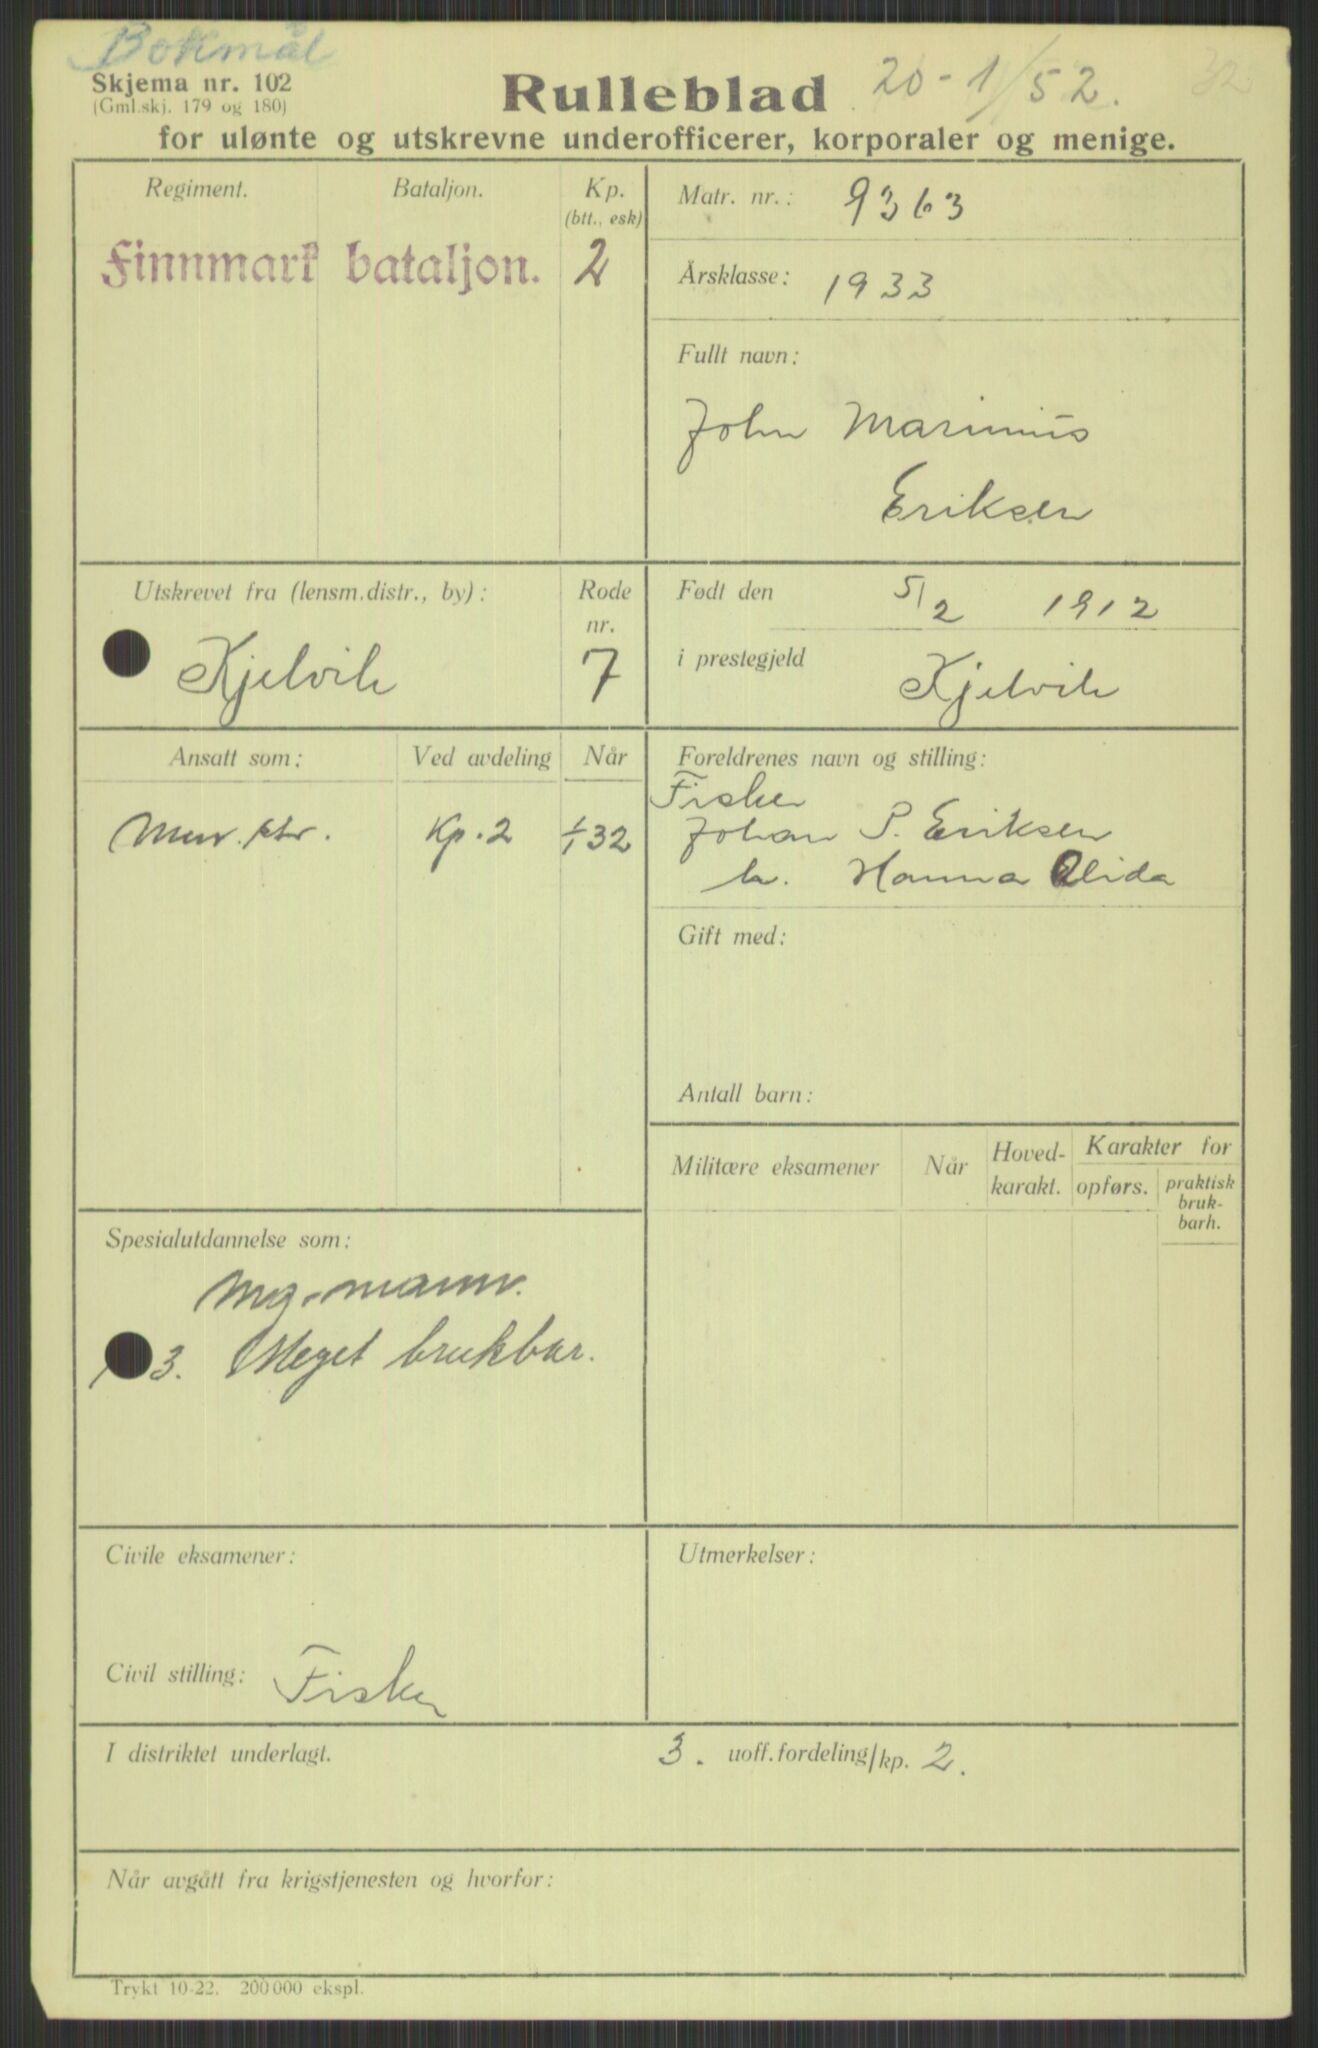 Bokmål
Skjema nr. 102
(Gml.skj. 179 og 180)
Rulleblad
20-1/52.
32
for ulønte og utskrevne underofficerer, korporaler og menige.
Regiment.
Bataljon.
Kp.
(btt., esk)
Finnmark bataljon.
2
Matr. nr.: 9363
Årsklasse: 1933
Fullt navn:
John Marinius
Eriksen
Utskrevet fra (lensm.distr., by):
Kjelvik
Rode
nr.
7
Født den 5/2 1912
i prestegjeld Kjelvik
Ansatt som:
Ved avdeling
Når
Kp. 2
1/1 32
Foreldrenes navn og stilling:
Fisker
Johan P. Eriksen
h. Hanna Alida
Gift med:
Antall barn:
Militære eksamener
Når
Hoved-
karakt.
Karakter for
opførs.
praktisk
bruk-
barh.
Spesialutdannelse som:
Mg.-mann.
3. Meget brukbar.
Civile eksamener:
Civil stilling: Fisker
Utmerkelser:
I distriktet underlagt.
3. uoff.fordeling/kp. 2.
Når avgått fra krigstjenesten og hvorfor:
Trykt 10-22. 200 000 ekspl.